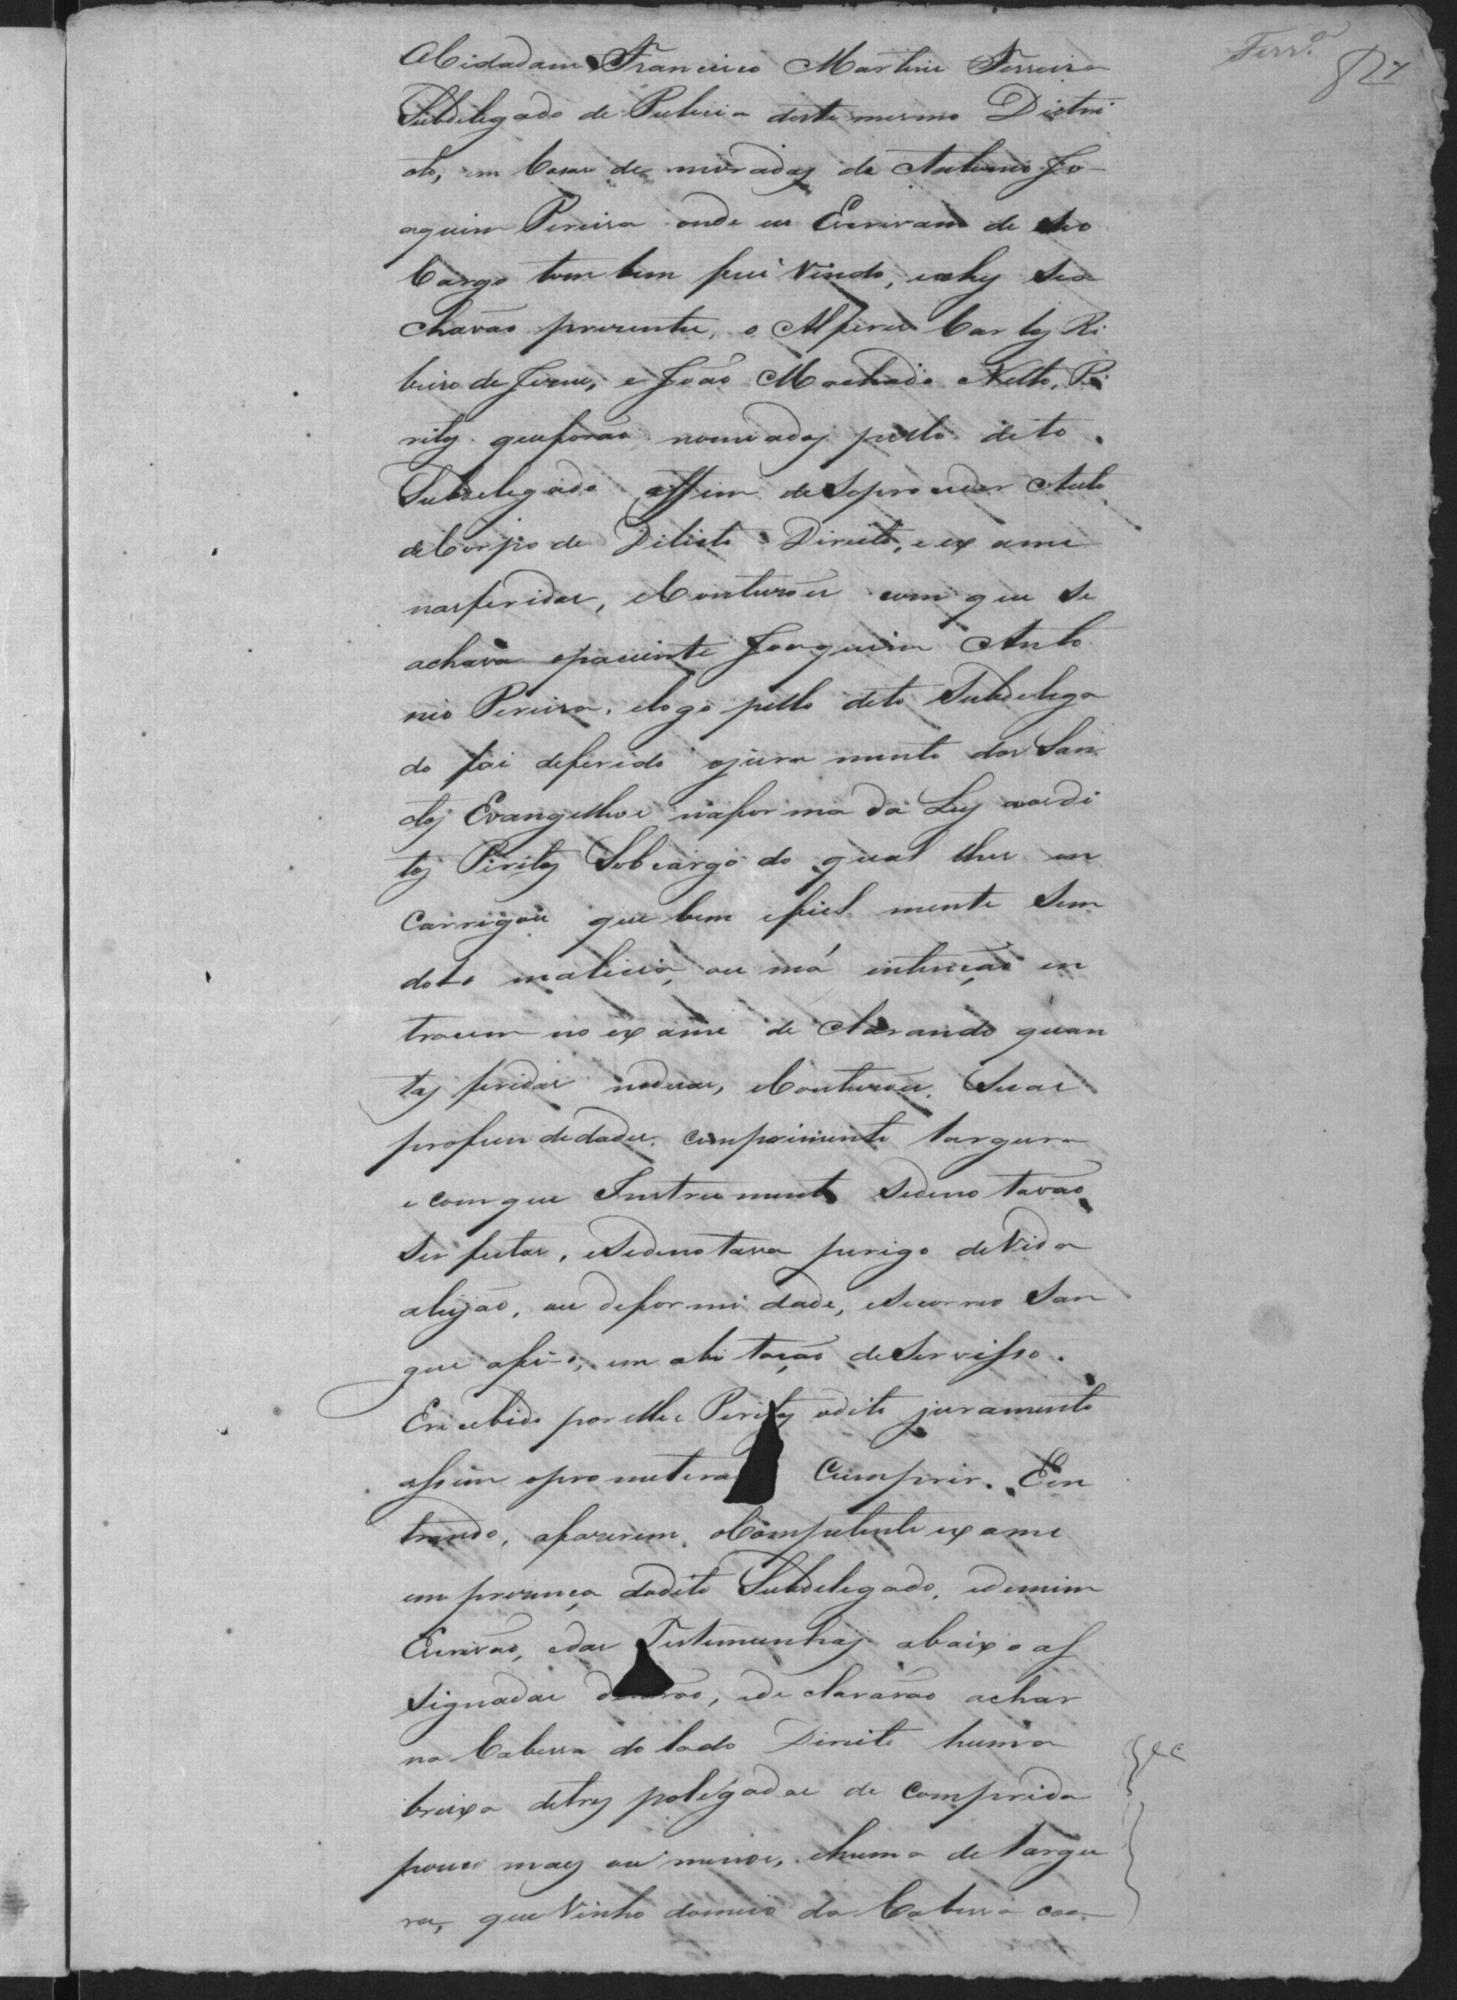 Ferr.ª
O Cidadam Francisco Martins Ferreira
Subdelegado de Pulicia deste mesmo Distri
cto, em Casas de moradas de Antonio Jo
aquim Pereira onde eu Escrivam de seo
Cargo tam bem fui vindo, e ahy se a
chavão prezentes, o Alferes Carlos Ri
beiro de Jezus, e João Machado Netto, Pi
ritos que forão nomiados pello dito
Subdelegado affim de se proceder Auto
de Corpo de Dilicto Direito, e ex ame
nas feridas, e Contuzoes com que se
achava o paciente Joaquim Anto
nio Pereira, e logo pello dito Subdelega
do foi deferido o jura mento dos San
tos Evangelhos na for ma da Ley aos di
tos Piritos Sob cargo do qual lhes en
carrigou que bem e fiel mente Sem
dolo malicia, ou má intenção en
tracem no ex ame de clarando quan
tas feridas nodoas, e Contuzoes, Suas
profun didades, comprimento largura
e com que Instru mento Se deno tavão
Ser feitas, e Se deno tava perigo de Vida
aleijão, ou defor mi dade, e Se correo San
gue a fio, em abi tação de Servisso.
E recebido por elles Piritos o dito juramento
assim o pro meterão Cumprir. E en
trando, a fazerem o Competente ex ame
em prezença do dito Subdelegado, e de mim
Escrivão, e das Testemunhas abaixo as
Signadas derão, e de clararão achar
na Cabessa do lado Direito huma
breixa de tres polegadas de comprida
pouco mays ou menos, e huma de largu
ra, que Vinha do meio da Cabessa